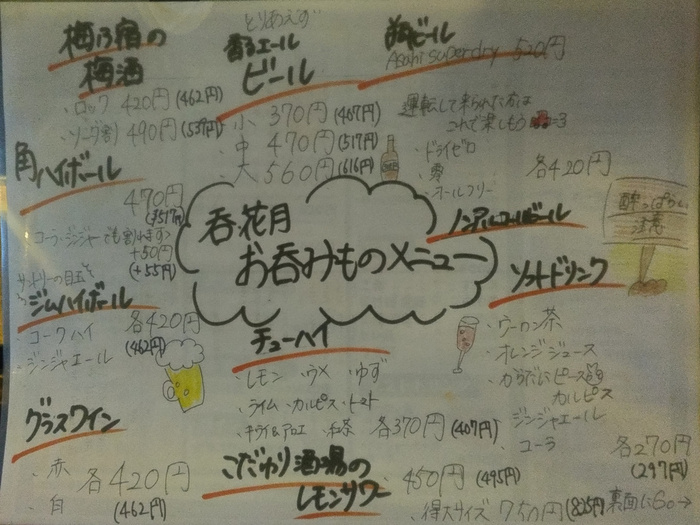 梅乃宿の
梅酒
・ロック 420円(462円)
・ソーダ割 490円(539円)
とりあえず
香るエール
ビール
小 370円(407円)
中 470円(517円)
大 560円(616円)
瓶ビール
Asahi superdry 520円
運転して来られた方は
これで楽しもう
・ドライゼロ
・零
・オールフリー
各420円
ノンアルコールビール
酔っぱらい
注意
角ハイボール
470円
(517円)
コーラ・ジンジャーでも割れます
+50円
(+55円)
呑花月
お呑みものメニュー
ジムハイボール
・コークハイ
・ジンジャエール
各420円
(462円)
チューハイ
・レモン ・ウメ ・ゆず
・ライム ・カルピス ・トマト
・キウイ&アロエ ・紅茶 各370円(407円)
ソフトドリンク
・ウーロン茶
・オレンジジュース
・からだにピース
カルピス
・ジンジャエール
・コーラ
各270円
(297円)
グラスワイン
・赤
・白
各420円
(462円)
こだわり酒場の
レモンサワー
・450円(495円)
・得大サイズ 750円(825円)
裏面にGo→